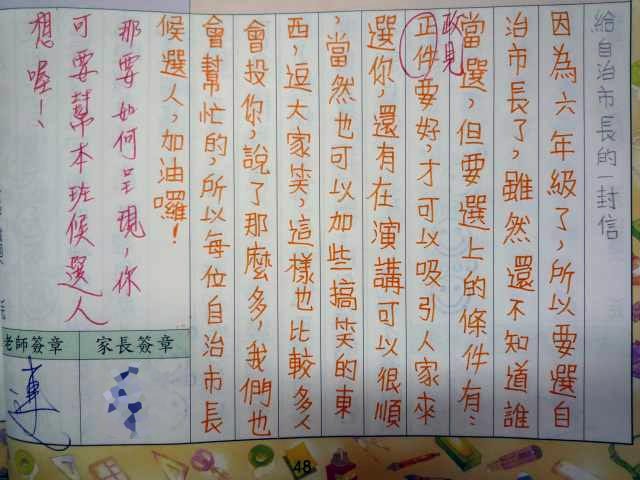 給自治市長的一封信
因為六年級了,所以要選自
治市長了,雖然還不知道誰
當選,但要選上的條件有:
政見
正件要好,才可以吸引人家來
選你,還有在演講可以很順
,當然也可以加些搞笑的東
西,逗大家笑,這樣也比較多人
會投你,說了那麼多,我們也
會幫忙的,所以每位自治市長
候選人,加油囉!
那要如何呈現,你
可要幫本班候選人
想喔!
家長簽章
老師簽章
連
48